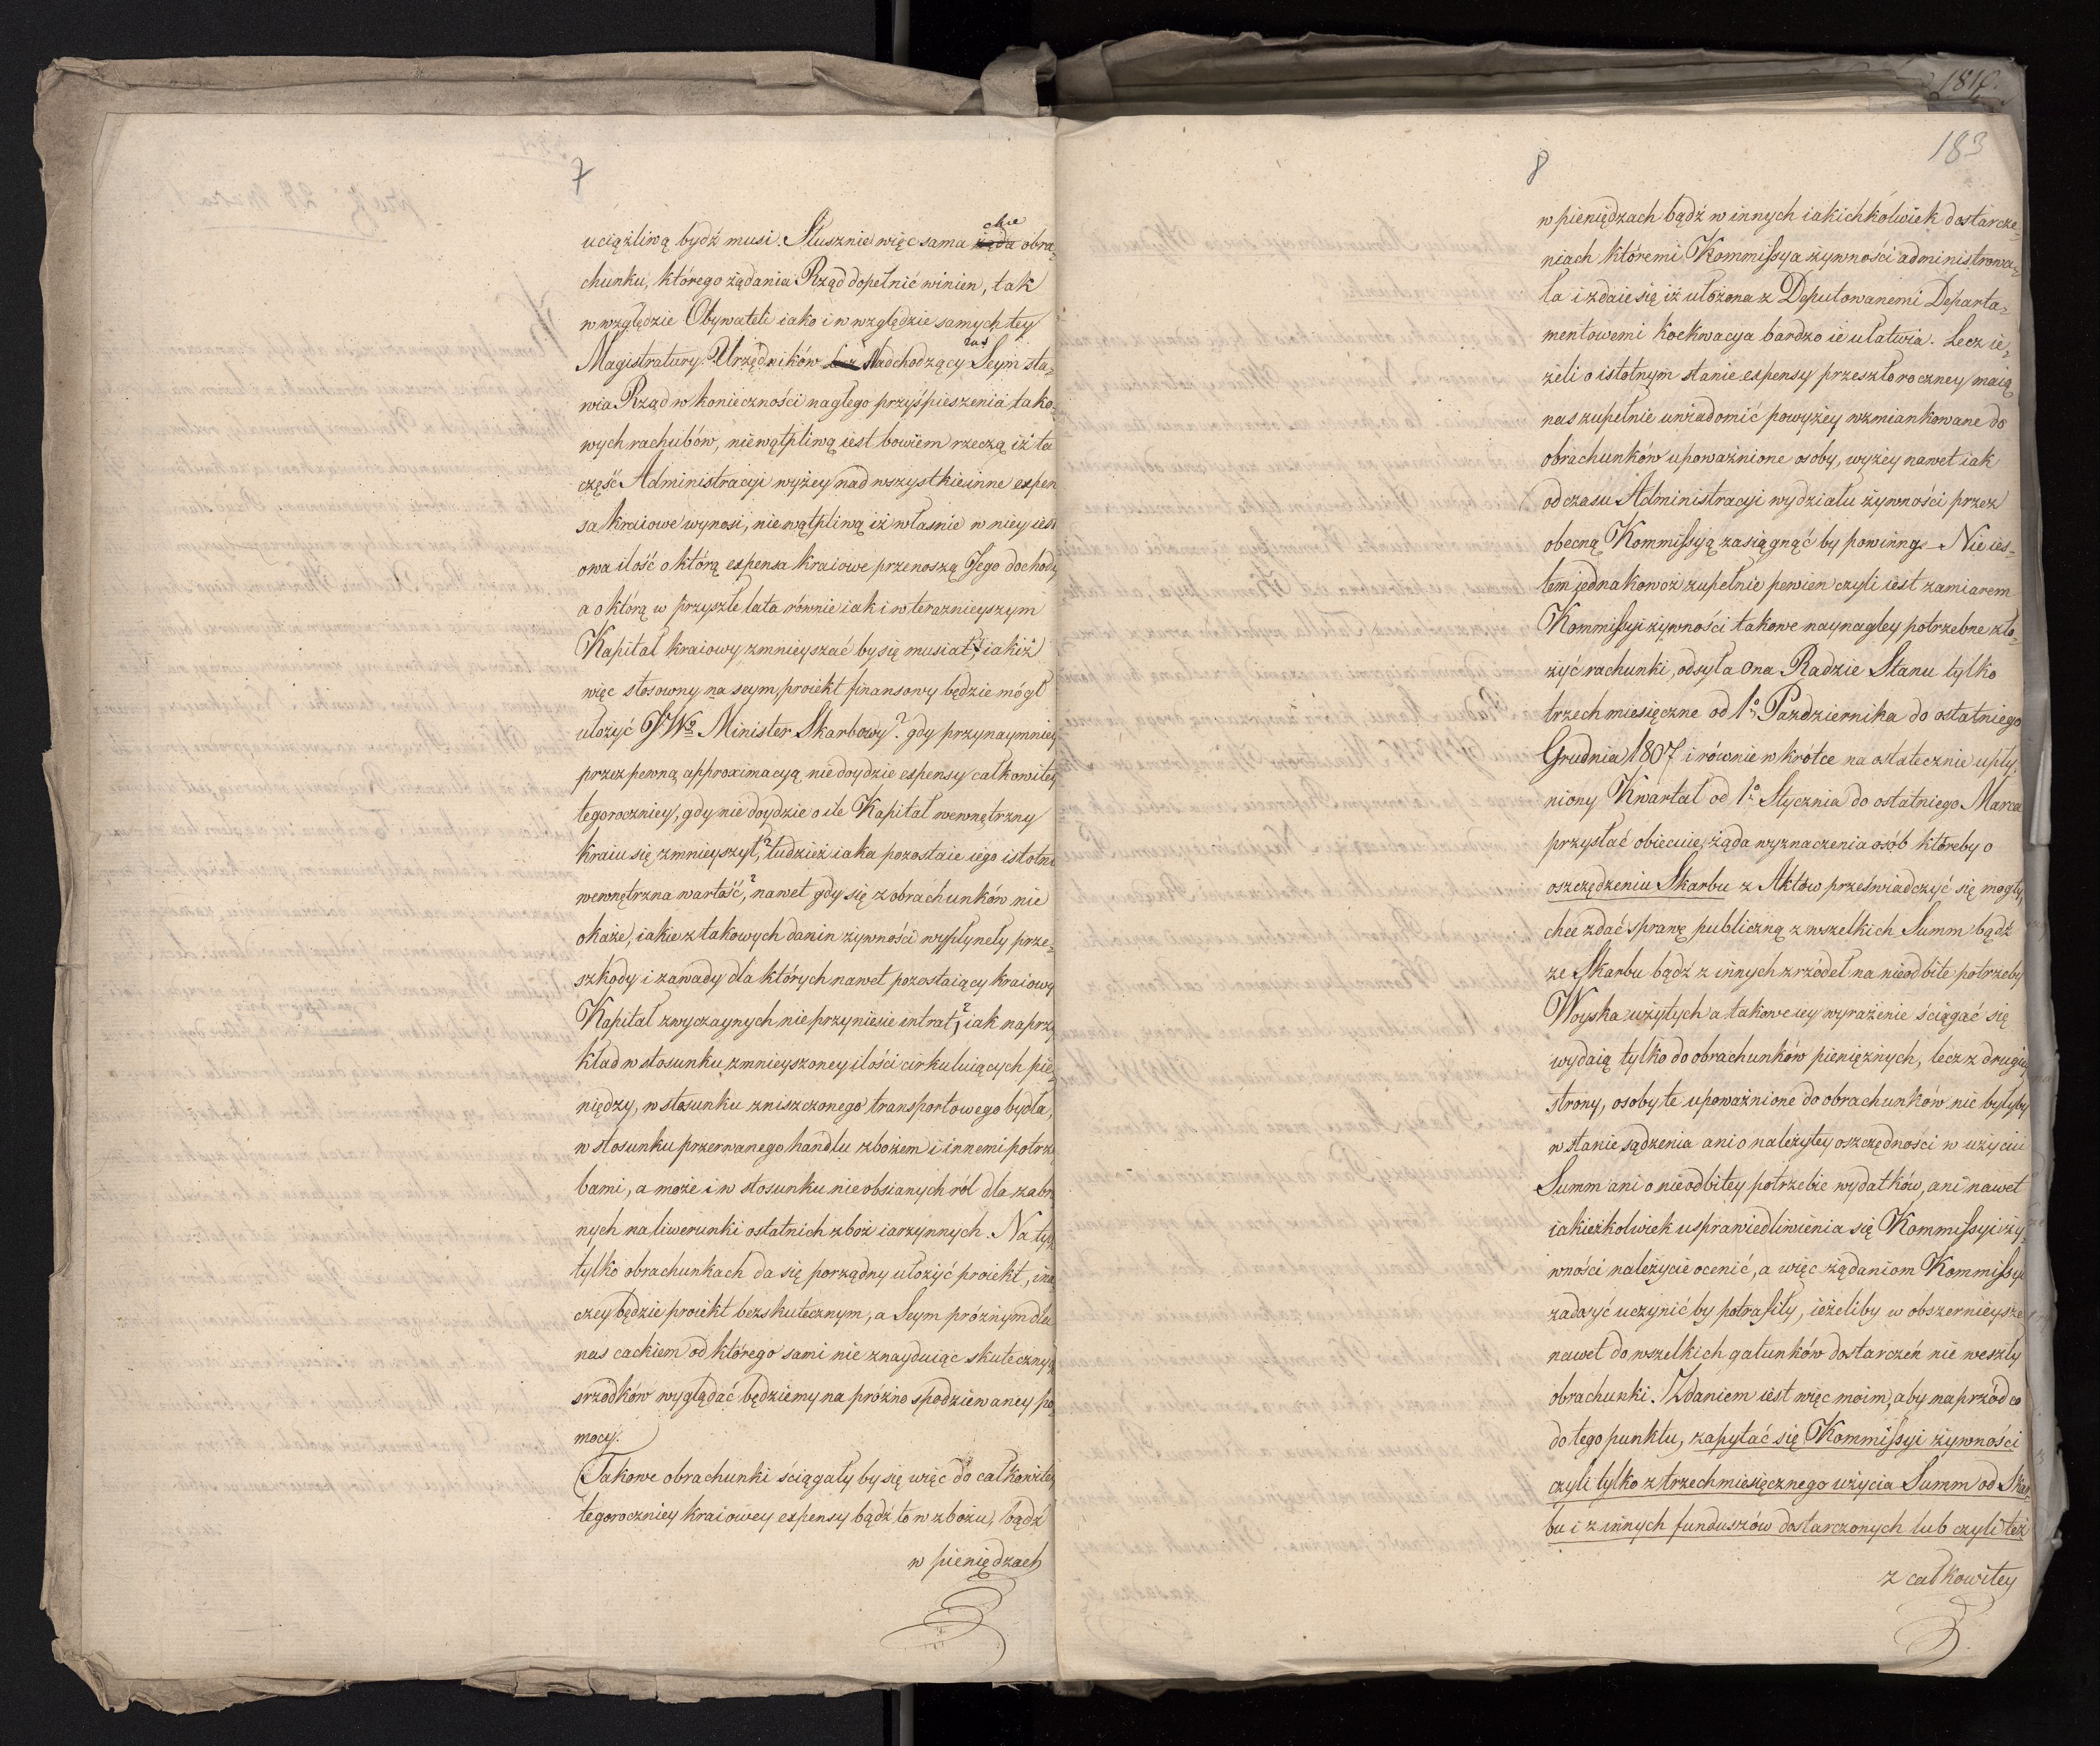 7
uciążliwą bydź musi. Słusznie więc sama żąda chce obra-
chunku, którego żądania Rząd dopełnić winien, tak
w względzie Obywateli iako i w względzie samych tey
Magistratury Urzędników Lecz Nadchodzący zaś Seym sta-
wia Rząd w konieczności nagłego przyśpieszenia tako-
wych rachubów, niewątpliwą iest bowiem rzeczą iż ta
część Administracyi wyżey nad wszystkie inne expen
sa kraiowe wynosi, niewątpliwą iż własnie w niey iest
owa ilość o którą expensa kraiowe przenoszą Jego dochody
a o którą w przyszłe lata równie iak i w teraznieyszym
Kapitał kraiowy zmnieyszać by się musiał, iakiż
więc stosowny na seym proiekt finansowy będzie mógł
ułożyć JW. Minister Skarbowy? gdy przynaymniey
przez pewną approximacyą nie doydzie expensy całkowitey
tegoroczniey, gdy nie doydzie o ile Kapitał wewnętrzny
kraiu się zmnieyszył,? tudzież iaka pozostaie iego istotna
wewnętrzna wartość,? nawet gdy się z obrachunków nie
okaże, iakie z takowych danin żywności wypłynęły prze-
szkody i zawady dla których nawet pozostaiący kraiowy
Kapitał zwyczaynych nie przyniesie intrat,? iak naprzy
kład w stosunku zmnieyszoney ilości cirkuluiących pie-
niędzy, w stosunku zniszczonego transportowego bydła,
w stosunku przerwanego handlu zbożem i innemi potrze
bami, a może i w stosunku nieobsianych ról dla zabra
nych na liwerunki ostatnich zboż iarzynnych. Na tych
tylko obrachunkach da się porządny ułożyć proiekt, ina
czey będzie proiekt bezskutecznym, a Seym próżnym dla
nas cackiem od którego sami nie znayduiąc skutecznych
srzodków wyglądać będziemy na próżno spodziewaney po-
mocy.
Takowe obrachunki ściągały by się więc do całkowitey
tegoroczniey kraiowey expensy bądź to w zbożu, bądź
w pieniędzach
181
183
8
w pieniędzach bądź w innych iakichkolwiek dostarcze-
niach któremi Kommissya żywności administrowa-
ła i zdaie się iż ułożona z Deputowanemi Departa-
mentowemi koekwacya bardzo ie ułatwia. Lecz ie-
żeli o istotnym stanie expensy przeszłoroczney maią
nas zupełnie uwiadomić powyżey wzmiankowane do
obrachunków upoważnione osoby, wyżey nawet iak
od czasu Administracyi wydziału żywności przez
obecną Kommissyą zasiągnąć by powinny. – Nie ies-
tem jednakowoż zupełnie pewien czyli iest zamiarem
Kommissyi żywności takowe naynagley potrzebne zło-
żyć rachunki, odsyła Ona Radzie Stanu tylko
trzech miesięczne od 1º Pazdziernika do ostatniego
Grudnia 1807 i równie wkrótce na ostatecznie upły-
niony Kwartał od 1º Stycznia do ostatniego Marca
przysłać obiecuie, żąda wyznaczenia osób któreby o
oszczędzeniu Skarbu z Aktów przeświadczyć się mogły,
chce zdać sprawę publiczną z wszelkich Summ bądź
ze Skarbu bądź z innych zrzódeł na nieodbite potrzeby
Woyska użytych a takowe iey wyrażenie ściągać się
wydaią tylko do obrachunków pieniężnych, lecz z drugiey
strony, osoby te upoważnione do obrachunków nie byłyby
w stanie sądzenia ani o należytey oszczędności w użyciu
Summ ani o nieodbitey potrzebie wydatków, ani nawet
iakieżkolwiek usprawiedliwienia się Kommissyi ży-
wności należycie ocenić, a więc żądaniom Kommissyi
zadosyć uczynić by potrafiły, ieżeliby w obszernieysze
nawet do wszelkich gatunków dostarczeń nie weszły
obrachunki. Zdaniem iest więc moim, aby naprzód co
do tego punktu, zapytać się Kommissyi żywności
czyli tylko z trzechmiesięcznego użycia Summ od Skar-
bu i z innych funduszów dostarczonych lub czyli też
z całkowitey